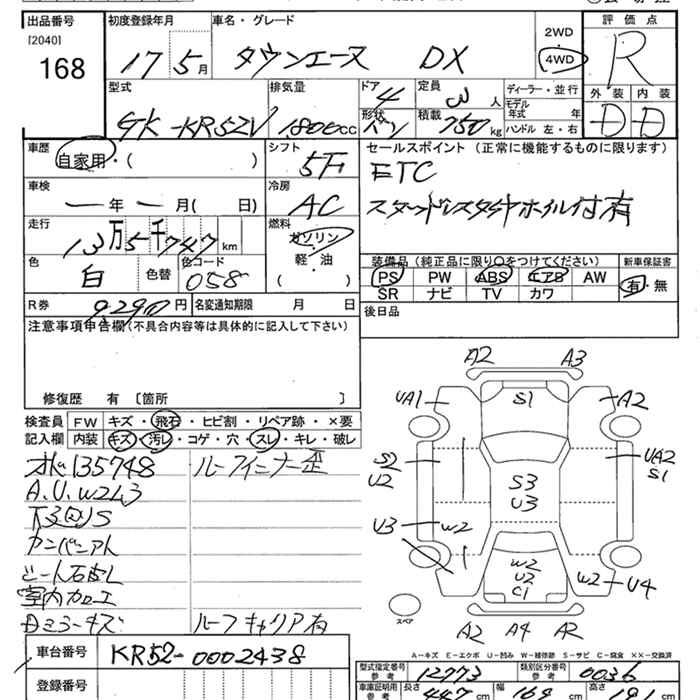 出品番号 初度登録年月 車名・グレード 2WD 評価点
[2040] 17 5月 タウンエース DX 4WD R
168
型式 排気量 ドア 4 定員 3 人 ディーラー・並行 外装 内装
GK-KR52V 1800cc 形状 バン 積載 750kg モデル年式 年 D D
ハンドル 左・右
車歴 シフト セールスポイント (正常に機能するものに限ります)
自家用・( ) 5F ETC
車検 冷房 スタッドレスタイヤホイル付有
ー年ー月( 日) AC
走行 燃料
13万5千747km ガソリン 装備品 (純正品に限り○をつけてください) 新車保証書
色 色替 色コード 軽・油 PS PW ABS エアB AW 有・無
白 058 ( ) SR ナビ TV カワ
R券 9,290円 名変通知期限 月 日 後日品
注意事項申告欄(不具合内容等は具体的に記入して下さい)
修復歴 有 〔箇所 〕
検査員 FW キズ・飛石・ヒビ割・リペア跡・×要
記入欄 内装 キズ・汚レ・コゲ・穴・スレ・キレ・破レ
135748 ルーフ
A.U.W2
S
室内
ミラーキズ ルーフキャリア有
車台番号 KR52-0002438
登録番号
A2 A3
UA1 S1 A2
S2 U2 S3 U3 UA2 S1
U3 W2 W2 U2 C1 W2 U4
スペア
A2 A4 A2
A-キズ E-エクボ U-凹み W-補修跡 S-サビ C-腐食 ××-交換済
型式指定番号 参考 12773 類別区分番号 参考 0036
車庫証明用 参考 長さ 447cm 幅 169cm 高さ cm